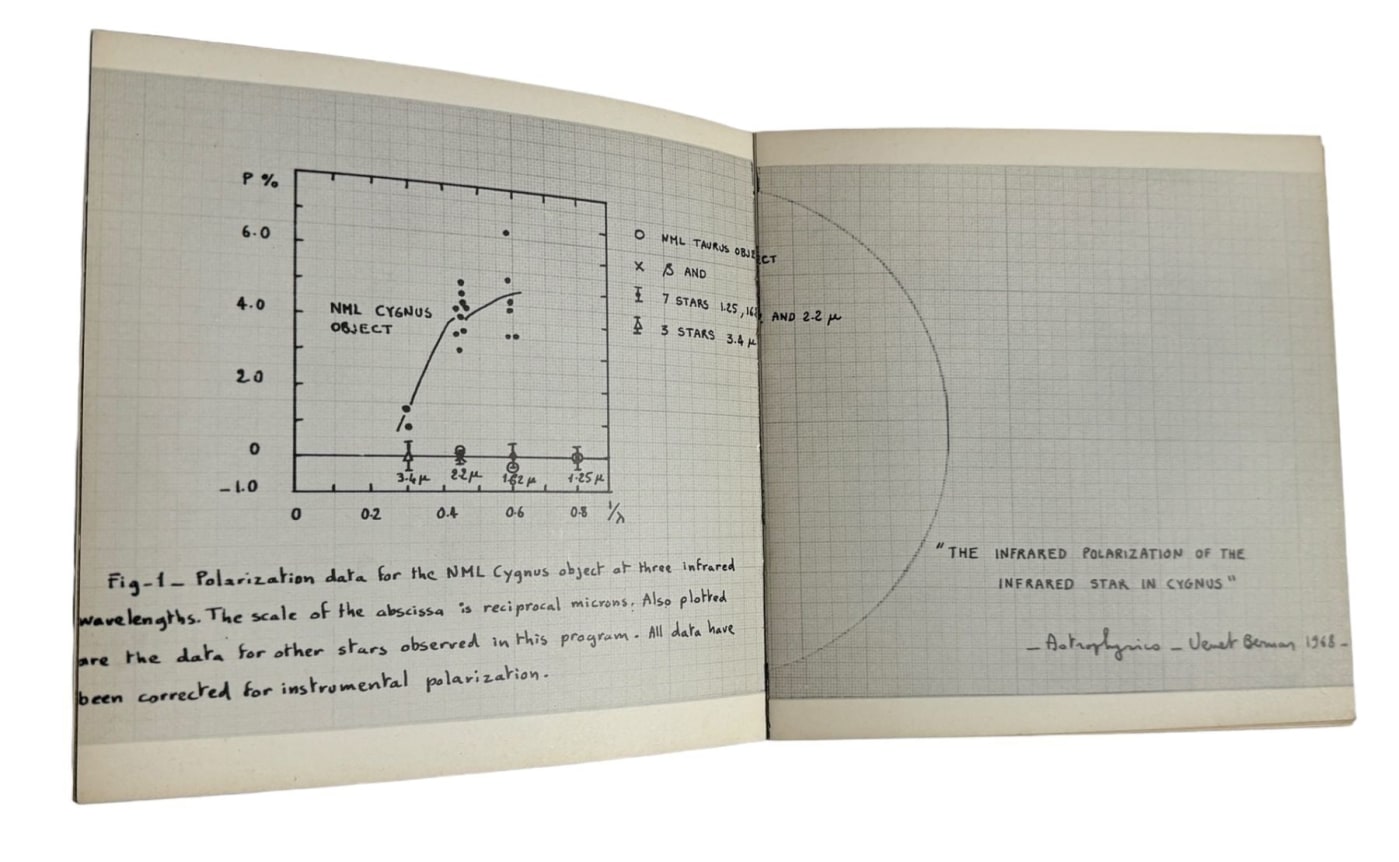 P %
6.0
4.0
2.0
0
-1.0
NML CYGNUS
OBJECT
3.4 μ
2.2 μ
1.62 μ
1.25 μ
0
0.2
0.4
0.6
0.8
1/λ
O NML TAURUS OBJECT
X β AND
7 STARS 1.25, AND 2.2 μ
3 STARS 3.4 μ
Fig-1 - Polarization data for the NML Cygnus object at three infrared
wavelengths. The scale of the abscissa is reciprocal microns. Also plotted
are the data for other stars observed in this program. All data have
been corrected for instrumental polarization.
"THE INFRARED POLARIZATION OF THE
INFRARED STAR IN CYGNUS"
- Venet 1968 -